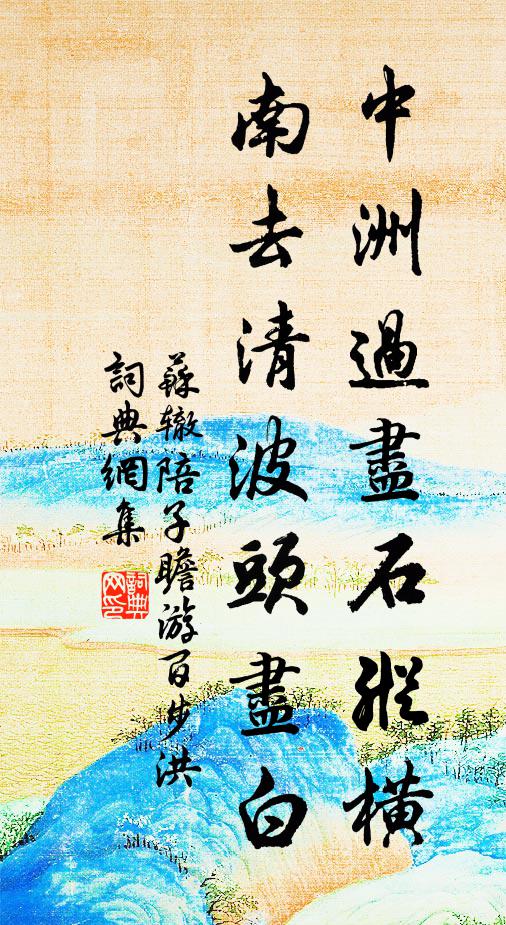 中洲過盡石縱橫
南去清波頭盡白
蘇辙陪子瞻游百步洪
詞典網集
詞典网印